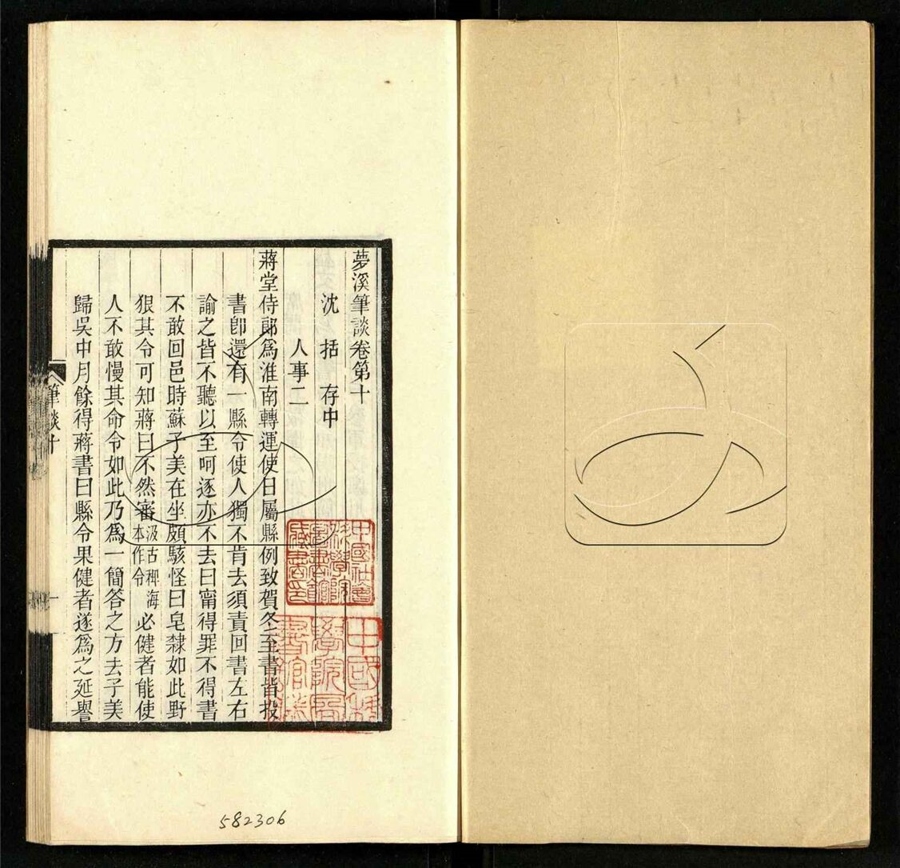 夢溪筆談卷第十
沈括存中
人事二
蔣堂侍郎爲淮南轉運使日屬縣例致賀冬至書皆投
書卽還有一縣令使人獨不肯去須責回書左右
諭之皆不聽以至呵逐亦不去曰甯得罪不得書
不敢回邑時蘇子美在坐頗駭怪曰皂隸如此野
狠其令可知蔣曰不然審汲古稗海本作令必健者能使
人不敢慢其命令如此乃爲一簡答之方去子美
歸吳中月餘得蔣書曰縣令果健者遂爲之延譽
筆談十
一
582306